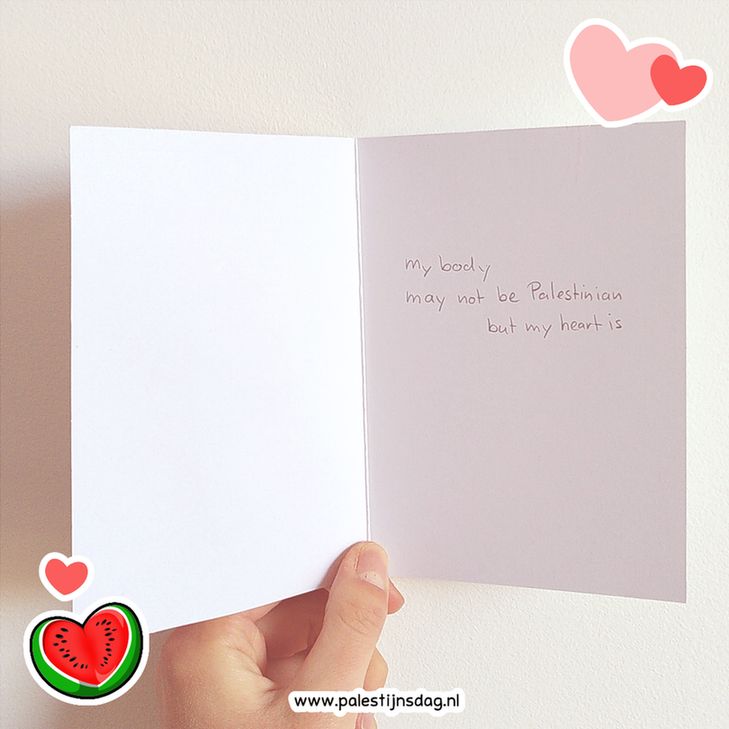 my body
may not be Palestinian
but my heart is
www.palestijnsdag.nl